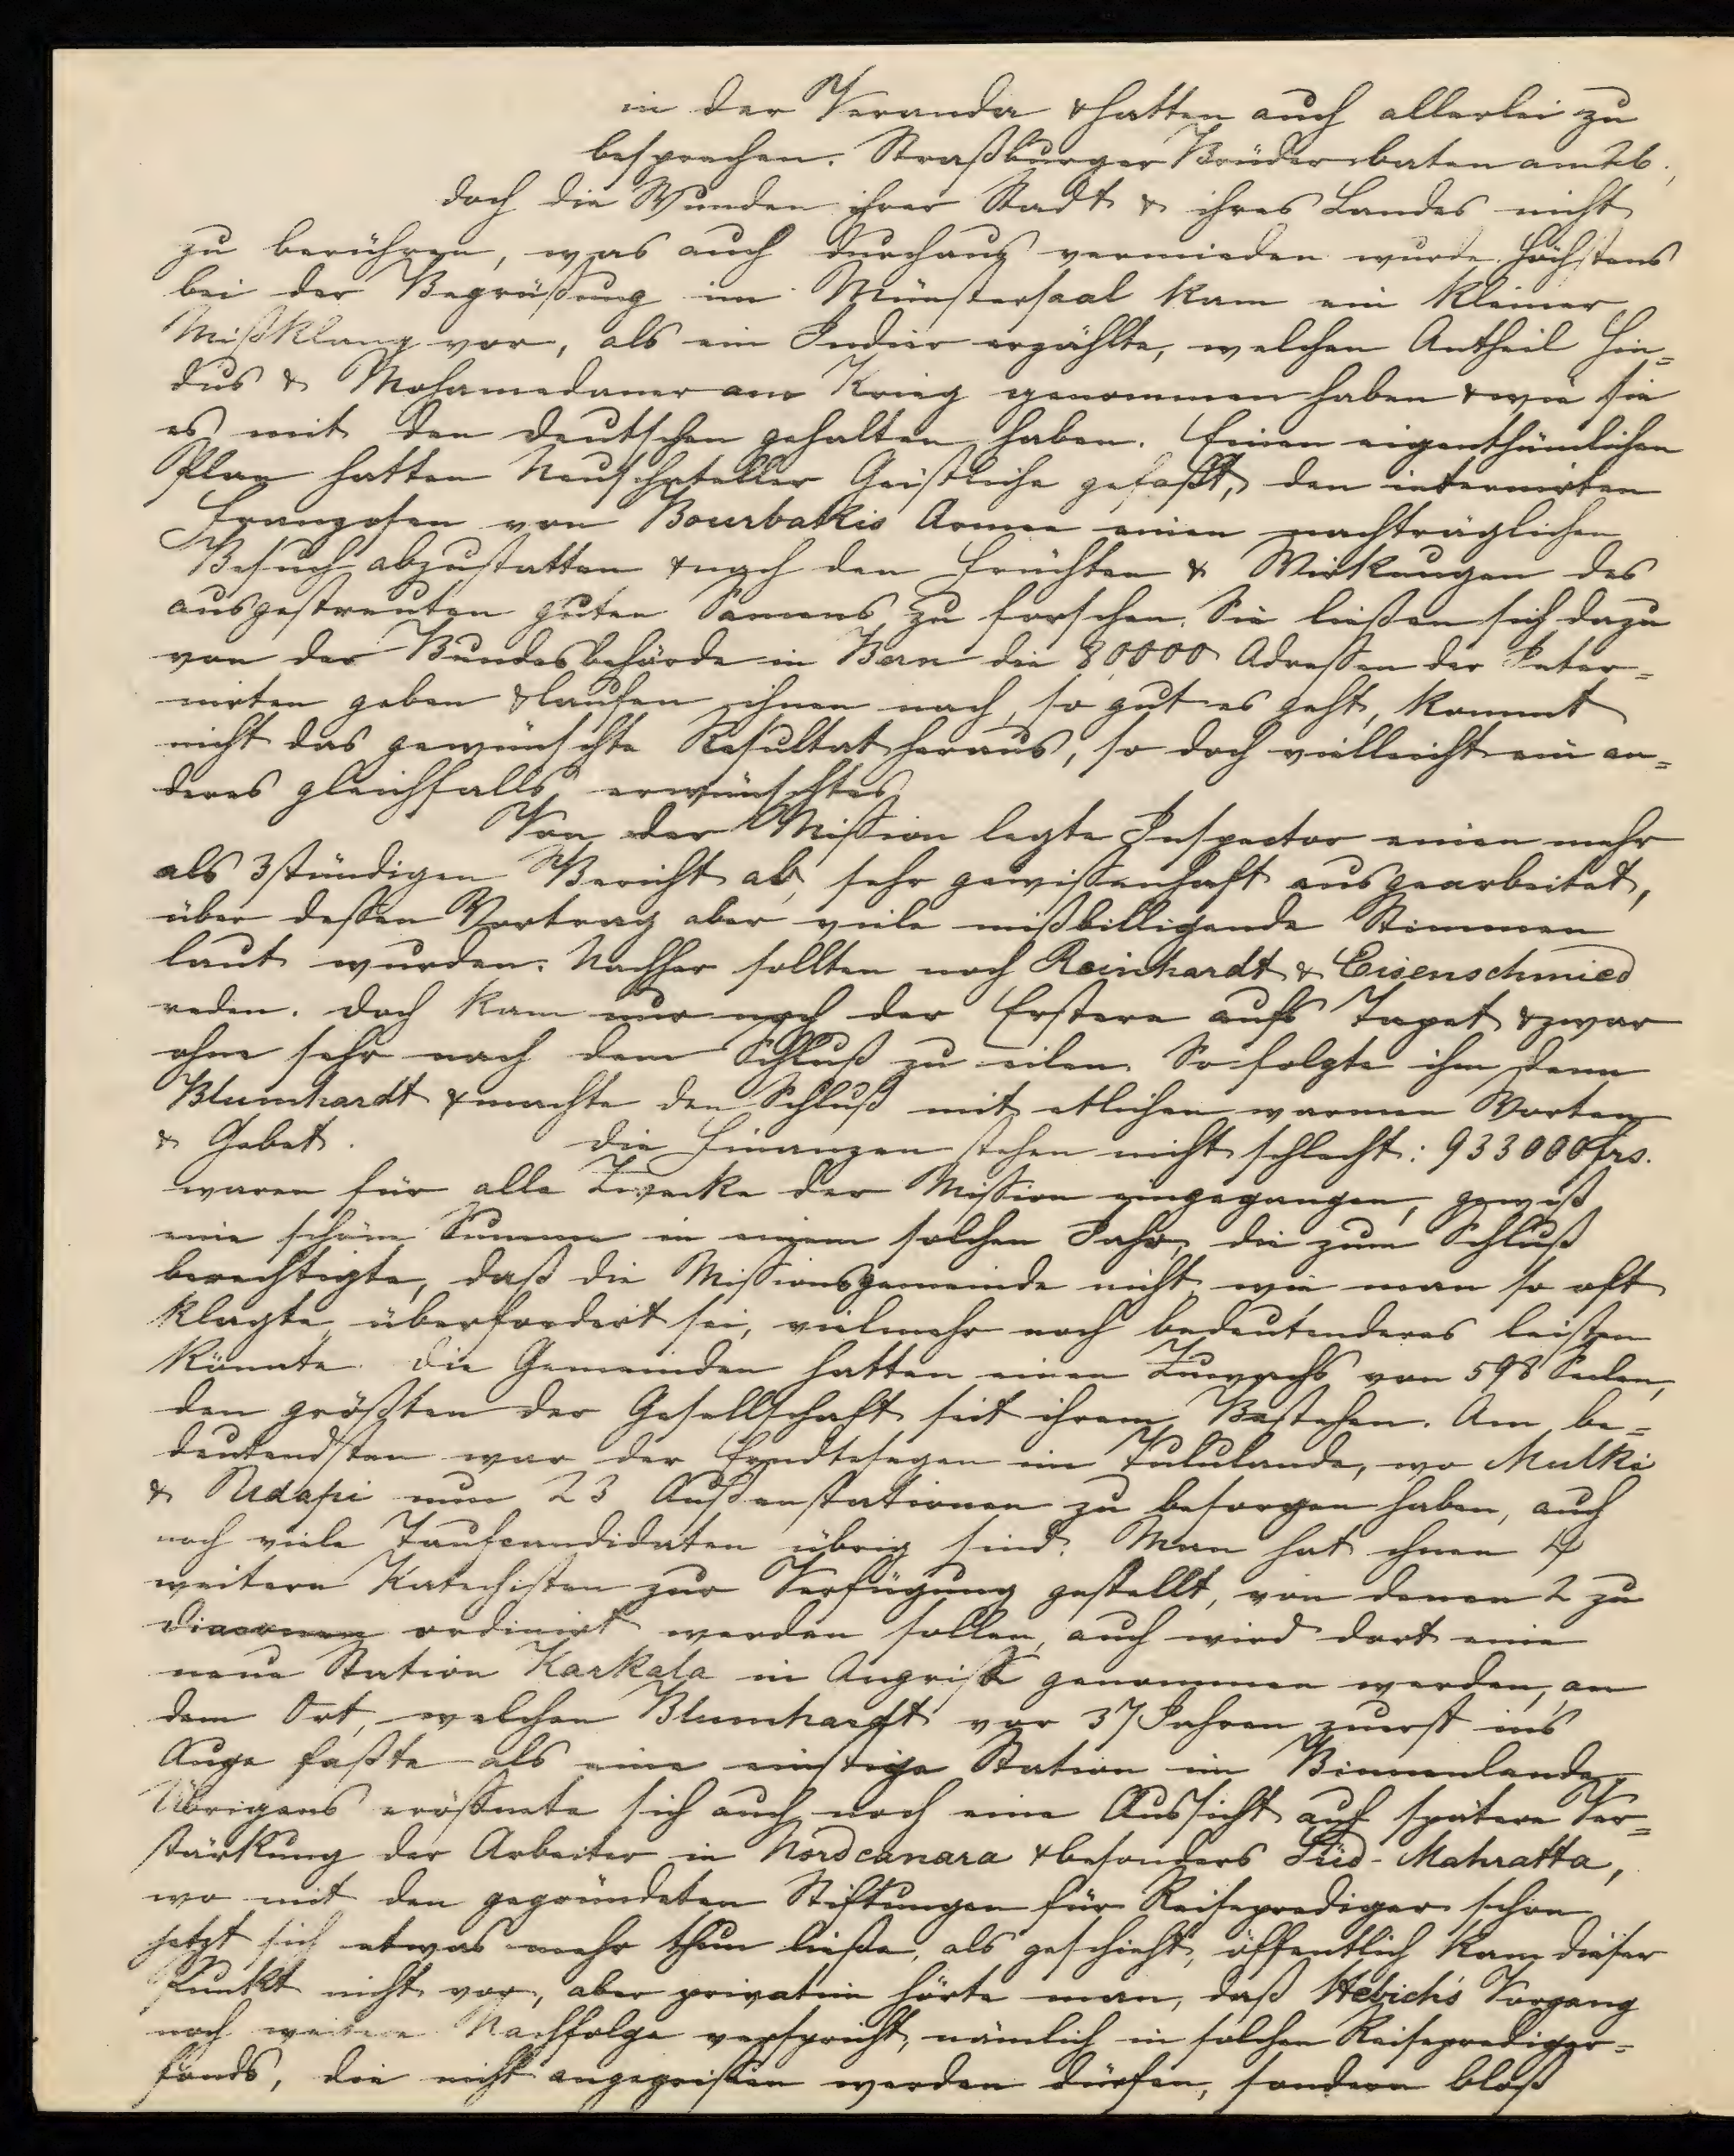 in der Veranda & hatten auch allerlei zu
besprechen. Straßburger Brüder baten am 26.,
doch die Wunden ihrer Stadt & ihres Landes nicht
zu berühren, was auch durchaus vermieden wurde. Höchstens
bei der Begrüßung im Münstersaal kam ein kleiner
Mißklang vor, als ein Indier erzählte, welchen Antheil Hin=
dus & Mohamedaner am Krieg genommen haben & wie sie
es mit den Deutschen gehalten haben. Einen eigenthümlichen
Plan hatten Neuschateller Geistliche gefaßt, den internirten
Franzosen von Bourbakis Armee einen nachträglichen
Besuch abzustatten & nach den Früchten & Wirkungen des
ausgestreuten guten Samens zu forschen. Sie ließen sich dazu
von der Bundesbehörde in Bern die 80000 Adressen der Inter=
nirten geben & laufen ihnen nach, so gut es geht, kommt
nicht das gewünschte Resultat heraus, so doch vielleicht ein an=
deres gleichfalls erwünschtes.
Von der Mission legte Inspector einen mehr
als 3stündigen Bericht ab, sehr gewissenhaft ausgearbeitet,
über dessen Vortrag aber viele mißbilligende Stimmen
laut wurden. Nachher sollten noch Reinhardt & Eisenschmied
reden. Doch kam nur noch der Erstere aufs Tapet & zwar
ohne sehr nach dem Schluß zu eilen. So folgte ihm denn
Blumhardt & machte den Schluß mit etlichen warmen Worten
& Gebet. Die Finanzen stehen nicht schlecht: 933000 frs.
waren für alle Zwecke der Mission eingegangen, gewiß
eine schöne Summe in einem solchen Jahr, die zum Schluß
berechtigte, daß die Missionsgemeinde nicht, wie man so oft
klagte, überfordert sei, vielmehr noch bedeutenderes leisten
könnte. Die Gemeinden hatten einen Zuwachs von 598 Seelen,
den größten der Gesellschaft seit ihrem Bestehen. Am be=
deutendsten war der Erndtesegen im Tululande, wo Mulki
& Udapi nun 23 Außenstationen zu besorgen haben, auch
noch viele Taufcandidaten übrig sind. Man hat ihnen 4
weitere Katechisten zur Verfügung gestellt, von denen 2 zu
Diaconen ordinirt werden sollen, auch wird dort eine
neue Station Karkala in Angriff genommen werden, an
dem Ort, welchen Blumhardt vor 37 Jahren zuerst in's
Auge faßte als eine einstige Station im Binnenlande.
Übrigens eröffnete sich auch noch eine Aussicht auf spätere Ver=
stärkung der Arbeiter in Nordcanara & besonders Süd-Mahratta,
wo mit den gegründeten Stiftungen für Reiseprediger schon
jetzt sich etwas mehr thun ließe, als geschieht, öffentlich kam dieser
Punkt nicht vor, aber privatim hörte man, daß Hebich's Vorgang
noch weitere Nachfolge verspricht, nämlich in solchen Reiseprediger=
fonds, die nicht angegriffen werden dürfen, sondern bloß